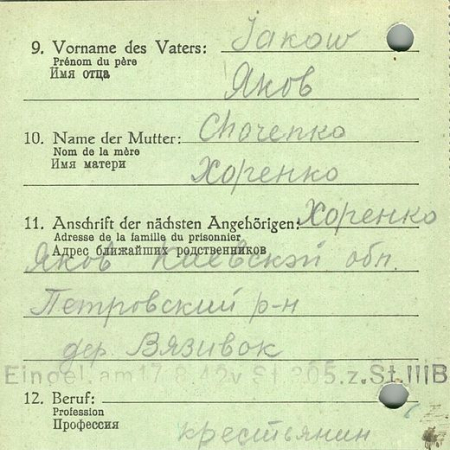 9. Vorname des Vaters: Jakow
Prénom du père
Имя отца
Яков
10. Name der Mutter: Chorenko
Nom de la mère
Имя матери
Хоренко
11. Anschrift der nächsten Angehörigen: Хоренко
Adresse de la famille du prisonnier
Адрес ближайших родственников
Яков Киевской обл.
Петровский р-н
дер. Вязивок
Eingel. am 17.8.42 v. St. 305. z. St. III B
12. Beruf:
Profession
Профессия
крестьянин